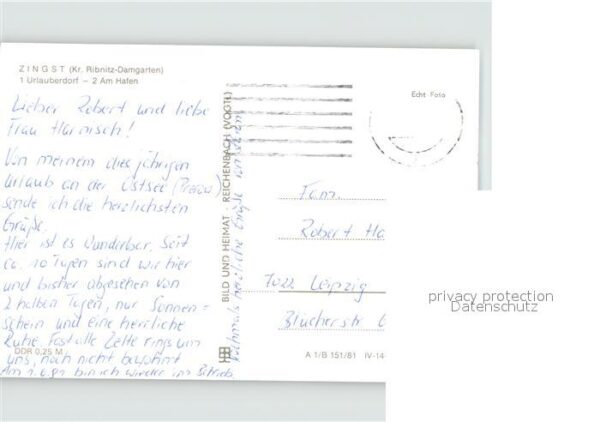 ZINGST (Kr. Ribnitz-Damgarten)
1 Urlauberdorf – 2 Am Hafen
Lieber Robert und liebe
Frau Harnisch!
Von meinem diesjährigen
Urlaub an der Ostsee (Prerow)
sende ich die herzlichsten
Grüße.
Hier ist es wunderbar. Seit
ca. 10 Tagen sind wir hier
und bisher abgesehen von
2 halben Tagen, nur Sonnen=
schein und eine herrliche
Ruhe. Fast alle Zelte rings um
uns, noch nicht bewohnt
Am 1.6.81 bin ich wieder im Betrieb
DDR 0,25 M
nochmals herzliche Grüße
BILD UND HEIMAT · REICHENBACH (VOGTL)
Echt Foto
Fam.
Robert Ha
7022 Leipzig
Blücherstr
A 1/B 151/81 IV-14
privacy protection
Datenschutz